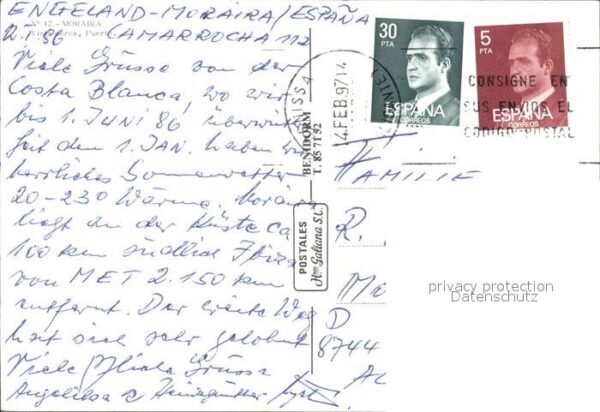 ENGELAND-MORAIRA/ESPAÑA
Nº 42 - MORAIRA
2.I.86 CAMARROCHA 112
Viele Grüsse von der
Costa Blanca, wo wir
bis 1. JUNI 86 überwint
Seit dem 1. JAN. haben wir
herrliches Sonnenwetter
20-23° Wärme. Moraira
liegt an der Küste ca
100 km südlich
von MET 2.150 km
entfernt. Der weite Weg
hat sich sehr gelohnt
Viele Grüsse
Angelika &
30
PTA
ESPAÑA
CORREOS
5
PTA
ESPAÑA
CORREOS
4 FEB. 97/14
CONSIGNE EN
SUS ENVIOS EL
CODIGO POSTAL
BENIDORM
T. 857152
POSTALES
Hnos Galiana S.L.
FAMILIE
R.
Me
D
8744
AL
privacy protection
Datenschutz